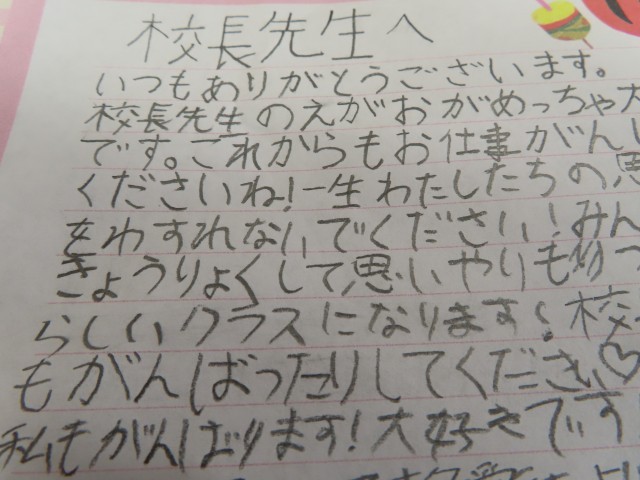 校長先生へ
いつもありがとうございます。
校長先生のえがおがめっちゃ大
です。これからもお仕事がん
くださいね!一生わたしたちの思
をわすれないでください!みん
きょうりょくして思いやりも
らしいクラスになります!校
もがんばったりしてください♡
私もがんばります!大好きです